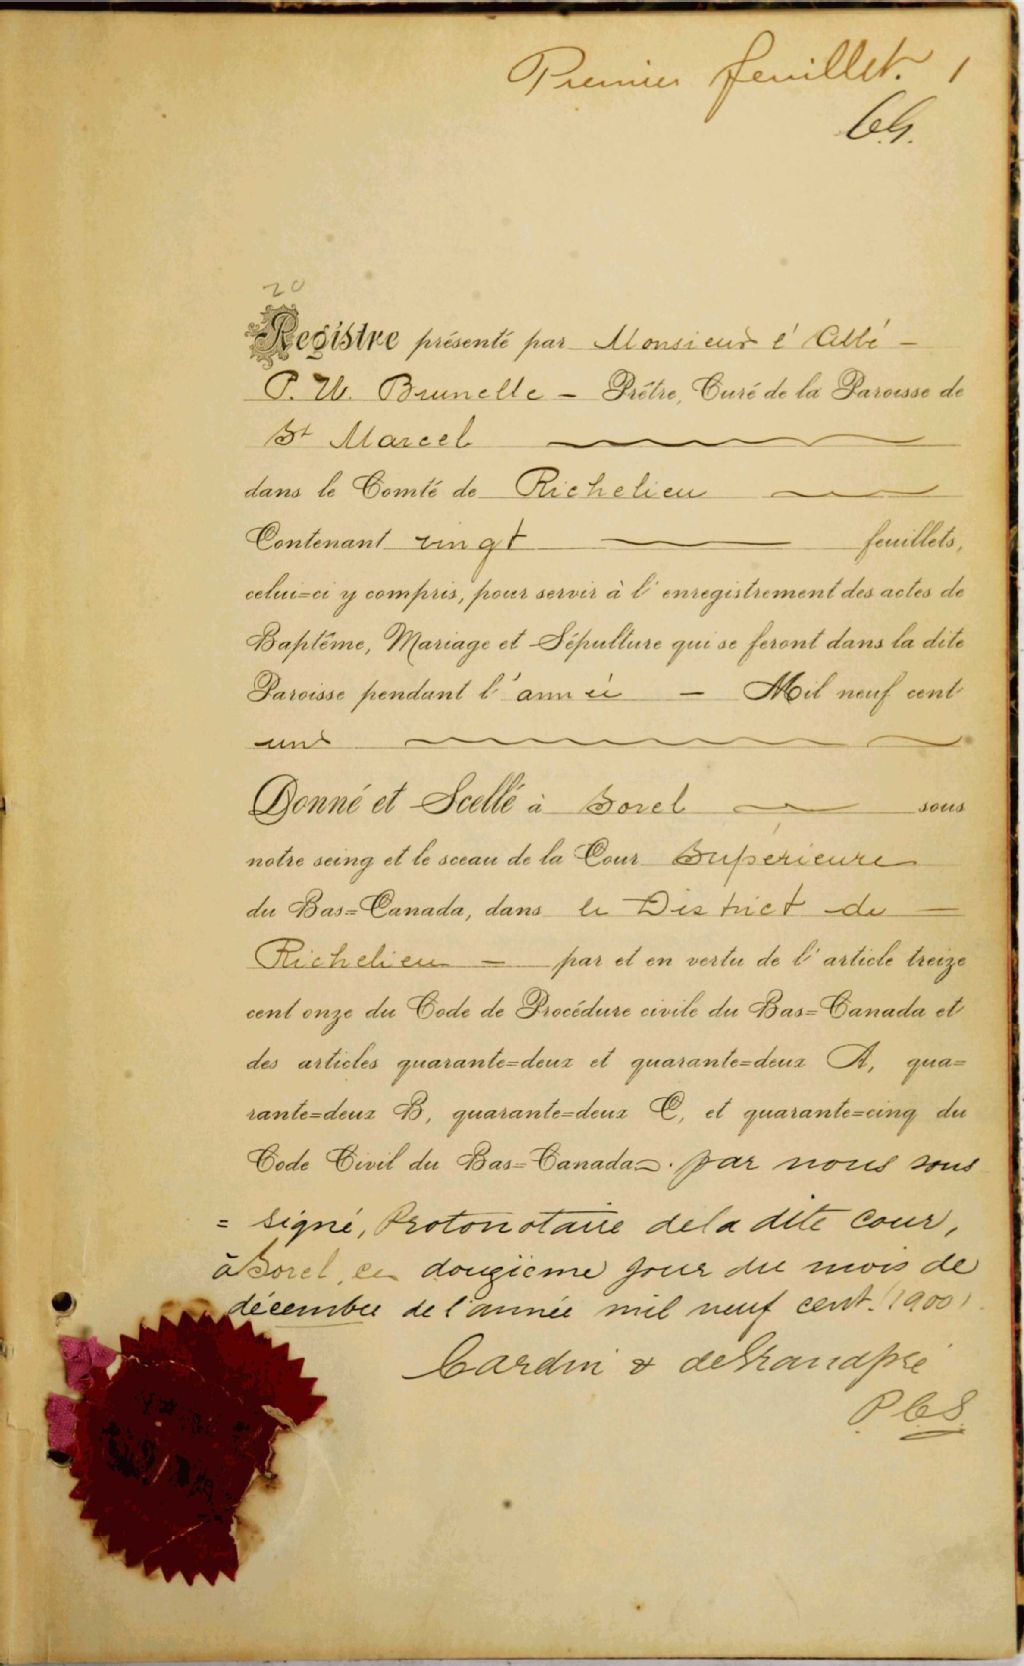 Premier feuillet. 1
C.G.
20
Registre présenté par Monsieur l'Abbé -
P. U. Brunelle - Prêtre, Curé de la Paroisse de
St Marcel
dans le Comté de Richelieu
Contenant vingt feuillets,
celui=ci y compris, pour servir à l'enregistrement des actes de
Baptême, Mariage et Sépulture qui se feront dans la dite
Paroisse pendant l'année - Mil neuf cent
un
Donné et Scellé à Sorel sous
notre seing et le sceau de la Cour Supérieure
du Bas=Canada, dans le District de -
Richelieu - par et en vertu de l'article treize
cent onze du Code de Procédure civile du Bas=Canada et
des articles quarante=deux et quarante=deux A, qua=
rante=deux B, quarante=deux C, et quarante=cinq du
Code Civil du Bas=Canada. par nous sous
= signé, Protonotaire de la dite cour,
à Sorel, ce douzième jour du mois de
décembre de l'année mil neuf cent. (1900)
Cardin & deGrandpré
P.C.S.